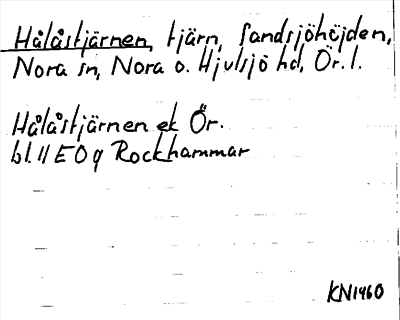 Hålåstjärnen, tjärn, Sandsjöhöjden,
Nora sn, Nora o. Hjulsjö hd, Ör. l.
Hålåstjärnen ek Ör.
bl. 11 E 0 g Rockhammar
KN1960